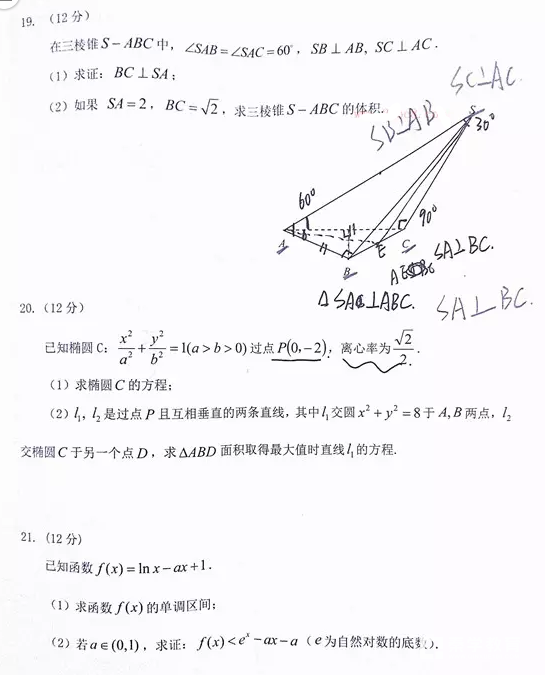 19. （12 分）
在三棱锥 S－ABC 中，∠SAB=∠SAC=60°，SB⊥AB, SC⊥AC．
（1）求证：BC⊥SA；
（2）如果 SA=2，BC=√2，求三棱锥 S－ABC 的体积．
SC⊥AC.
SB⊥AB
S
30°
60°
90°
A
B
E
C
SA⊥BC.
△SAC⊥ABC.
SA⊥BC.
20. （12 分）
已知椭圆 C：x²/a²+y²/b²=1(a>b>0) 过点 P(0,−2)，离心率为 √2/2．
（1）求椭圆 C 的方程；
（2）l₁, l₂ 是过点 P 且互相垂直的两条直线，其中 l₁ 交圆 x²+y²=8 于 A, B 两点，l₂
交椭圆 C 于另一个点 D，求 ΔABD 面积取得最大值时直线 l₁ 的方程.
21. （12 分）
已知函数 f(x)=ln x−ax+1．
（1）求函数 f(x) 的单调区间；
（2）若 a∈(0,1)，求证：f(x)<eˣ−ax−a（e 为自然对数的底数）．